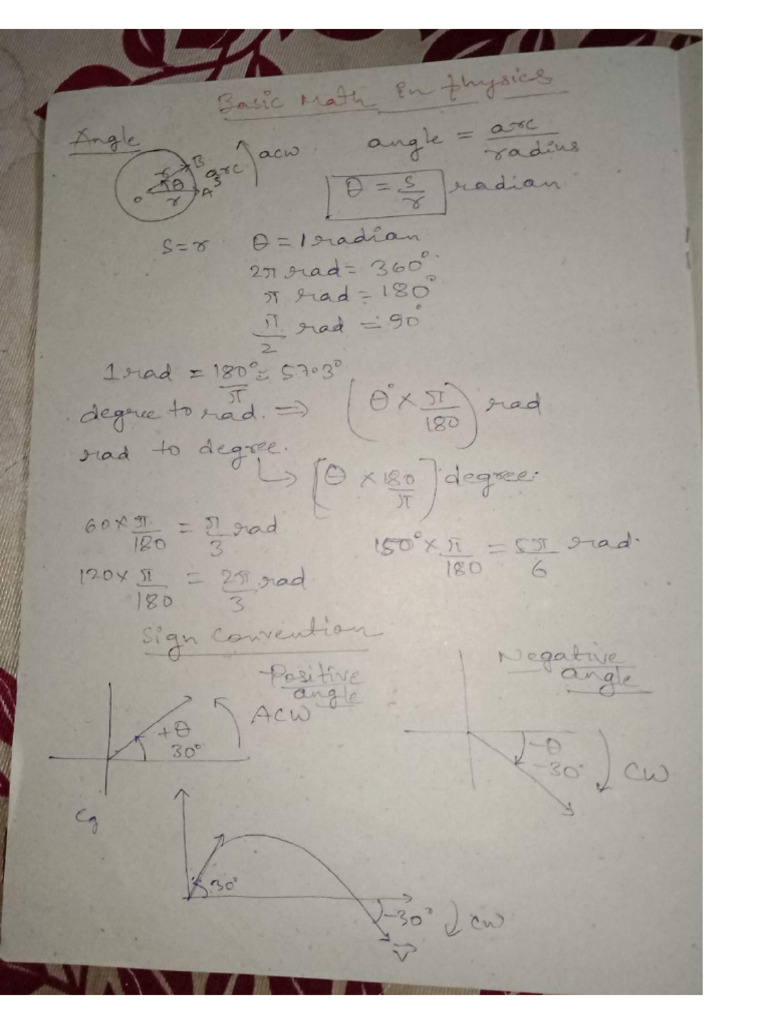 Basic Math In Physics
Angle
B
r
arc
S
θ
O
r
A
acw
angle = arc/radius
θ = S/r radian
S=r θ = 1 radian
2π rad = 360°
π rad = 180°
π/2 rad = 90°
1 rad = 180°/π = 57.3°
degree to rad. ⇒ (θ° × π/180) rad
rad to degree.
↳ [θ × 180/π] degree.
60 × π/180 = π/3 rad
150° × π/180 = 5π/6 rad.
120 × π/180 = 2π/3 rad
Sign Convention
Positive angle
Negative angle
+θ
30°
ACW
-θ
-30°
CW
Eg
30°
-30°
CW
V